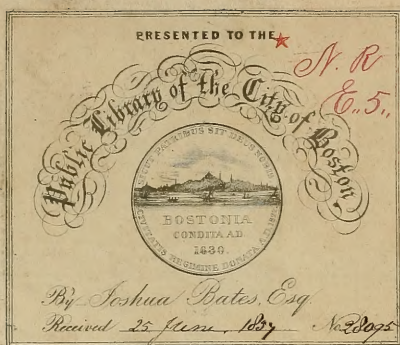 PRESENTED TO THE
N. R
E..5..
Public Library of the City of Boston,
SICUT PATRIBUS SIT DEUS NOBIS
BOSTONIA
CONDITA AD
1630.
CIVITATIS REGIMINE DONATA A.D. 1822
By Joshua Bates, Esq.
Received 25 June. 1857 No. 28095